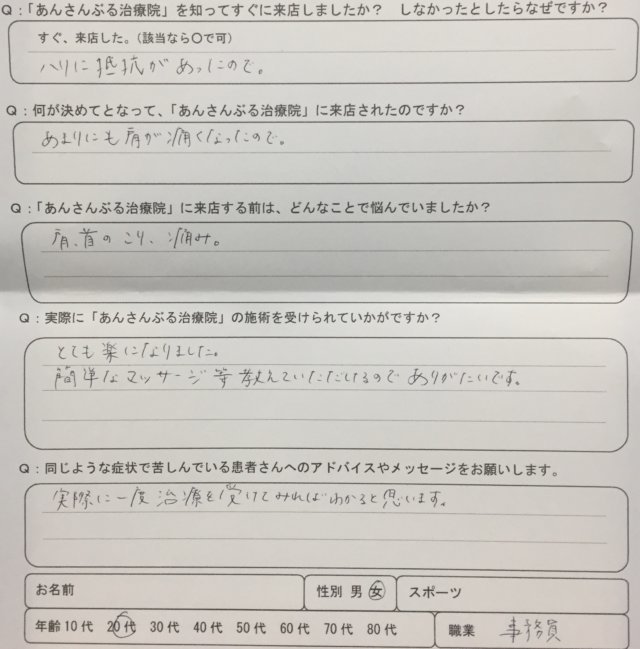 Q：「あんさんぶる治療院」を知ってすぐに来店しましたか？　しなかったとしたらなぜですか？
すぐ、来店した。（該当なら〇で可）
ハリに抵抗があったので。
Q：何が決めてとなって、「あんさんぶる治療院」に来店されたのですか？
あまりにも肩が痛くなったので。
Q：「あんさんぶる治療院」に来店する前は、どんなことで悩んでいましたか？
肩、首のこり、痛み。
Q：実際に「あんさんぶる治療院」の施術を受けられていかがですか？
とても楽になりました。
簡単なマッサージ等教えていただけるのでありがたいです。
Q：同じような症状で苦しんでいる患者さんへのアドバイスやメッセージをお願いします。
実際に一度治療を受けてみればわかると思います。
お名前　性別 男 女　スポーツ
年齢 10代　20代　30代　40代　50代　60代　70代　80代　職業　事務員